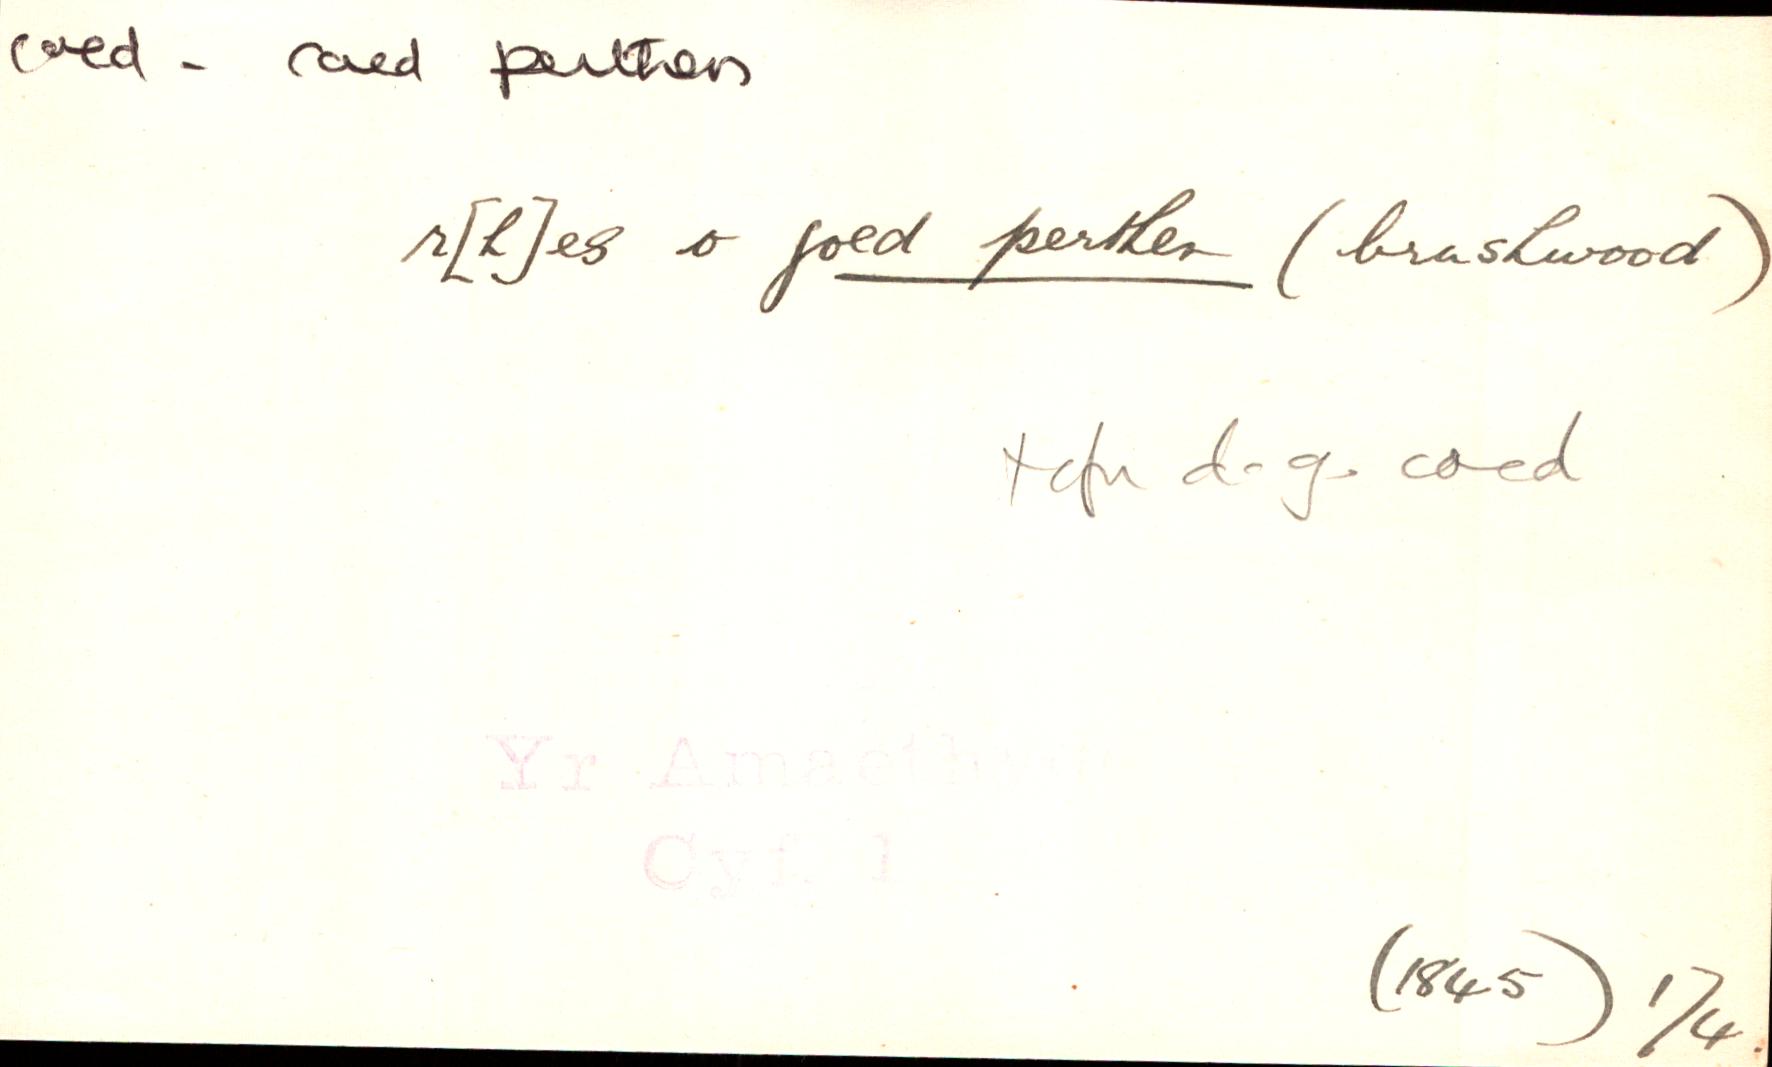 coed - coed perthen
r[h]es o goed perthen (brushwood)
+ cfn d.g. coed
Yr Amaeth
Cyf. 1
(1845) 1/4.